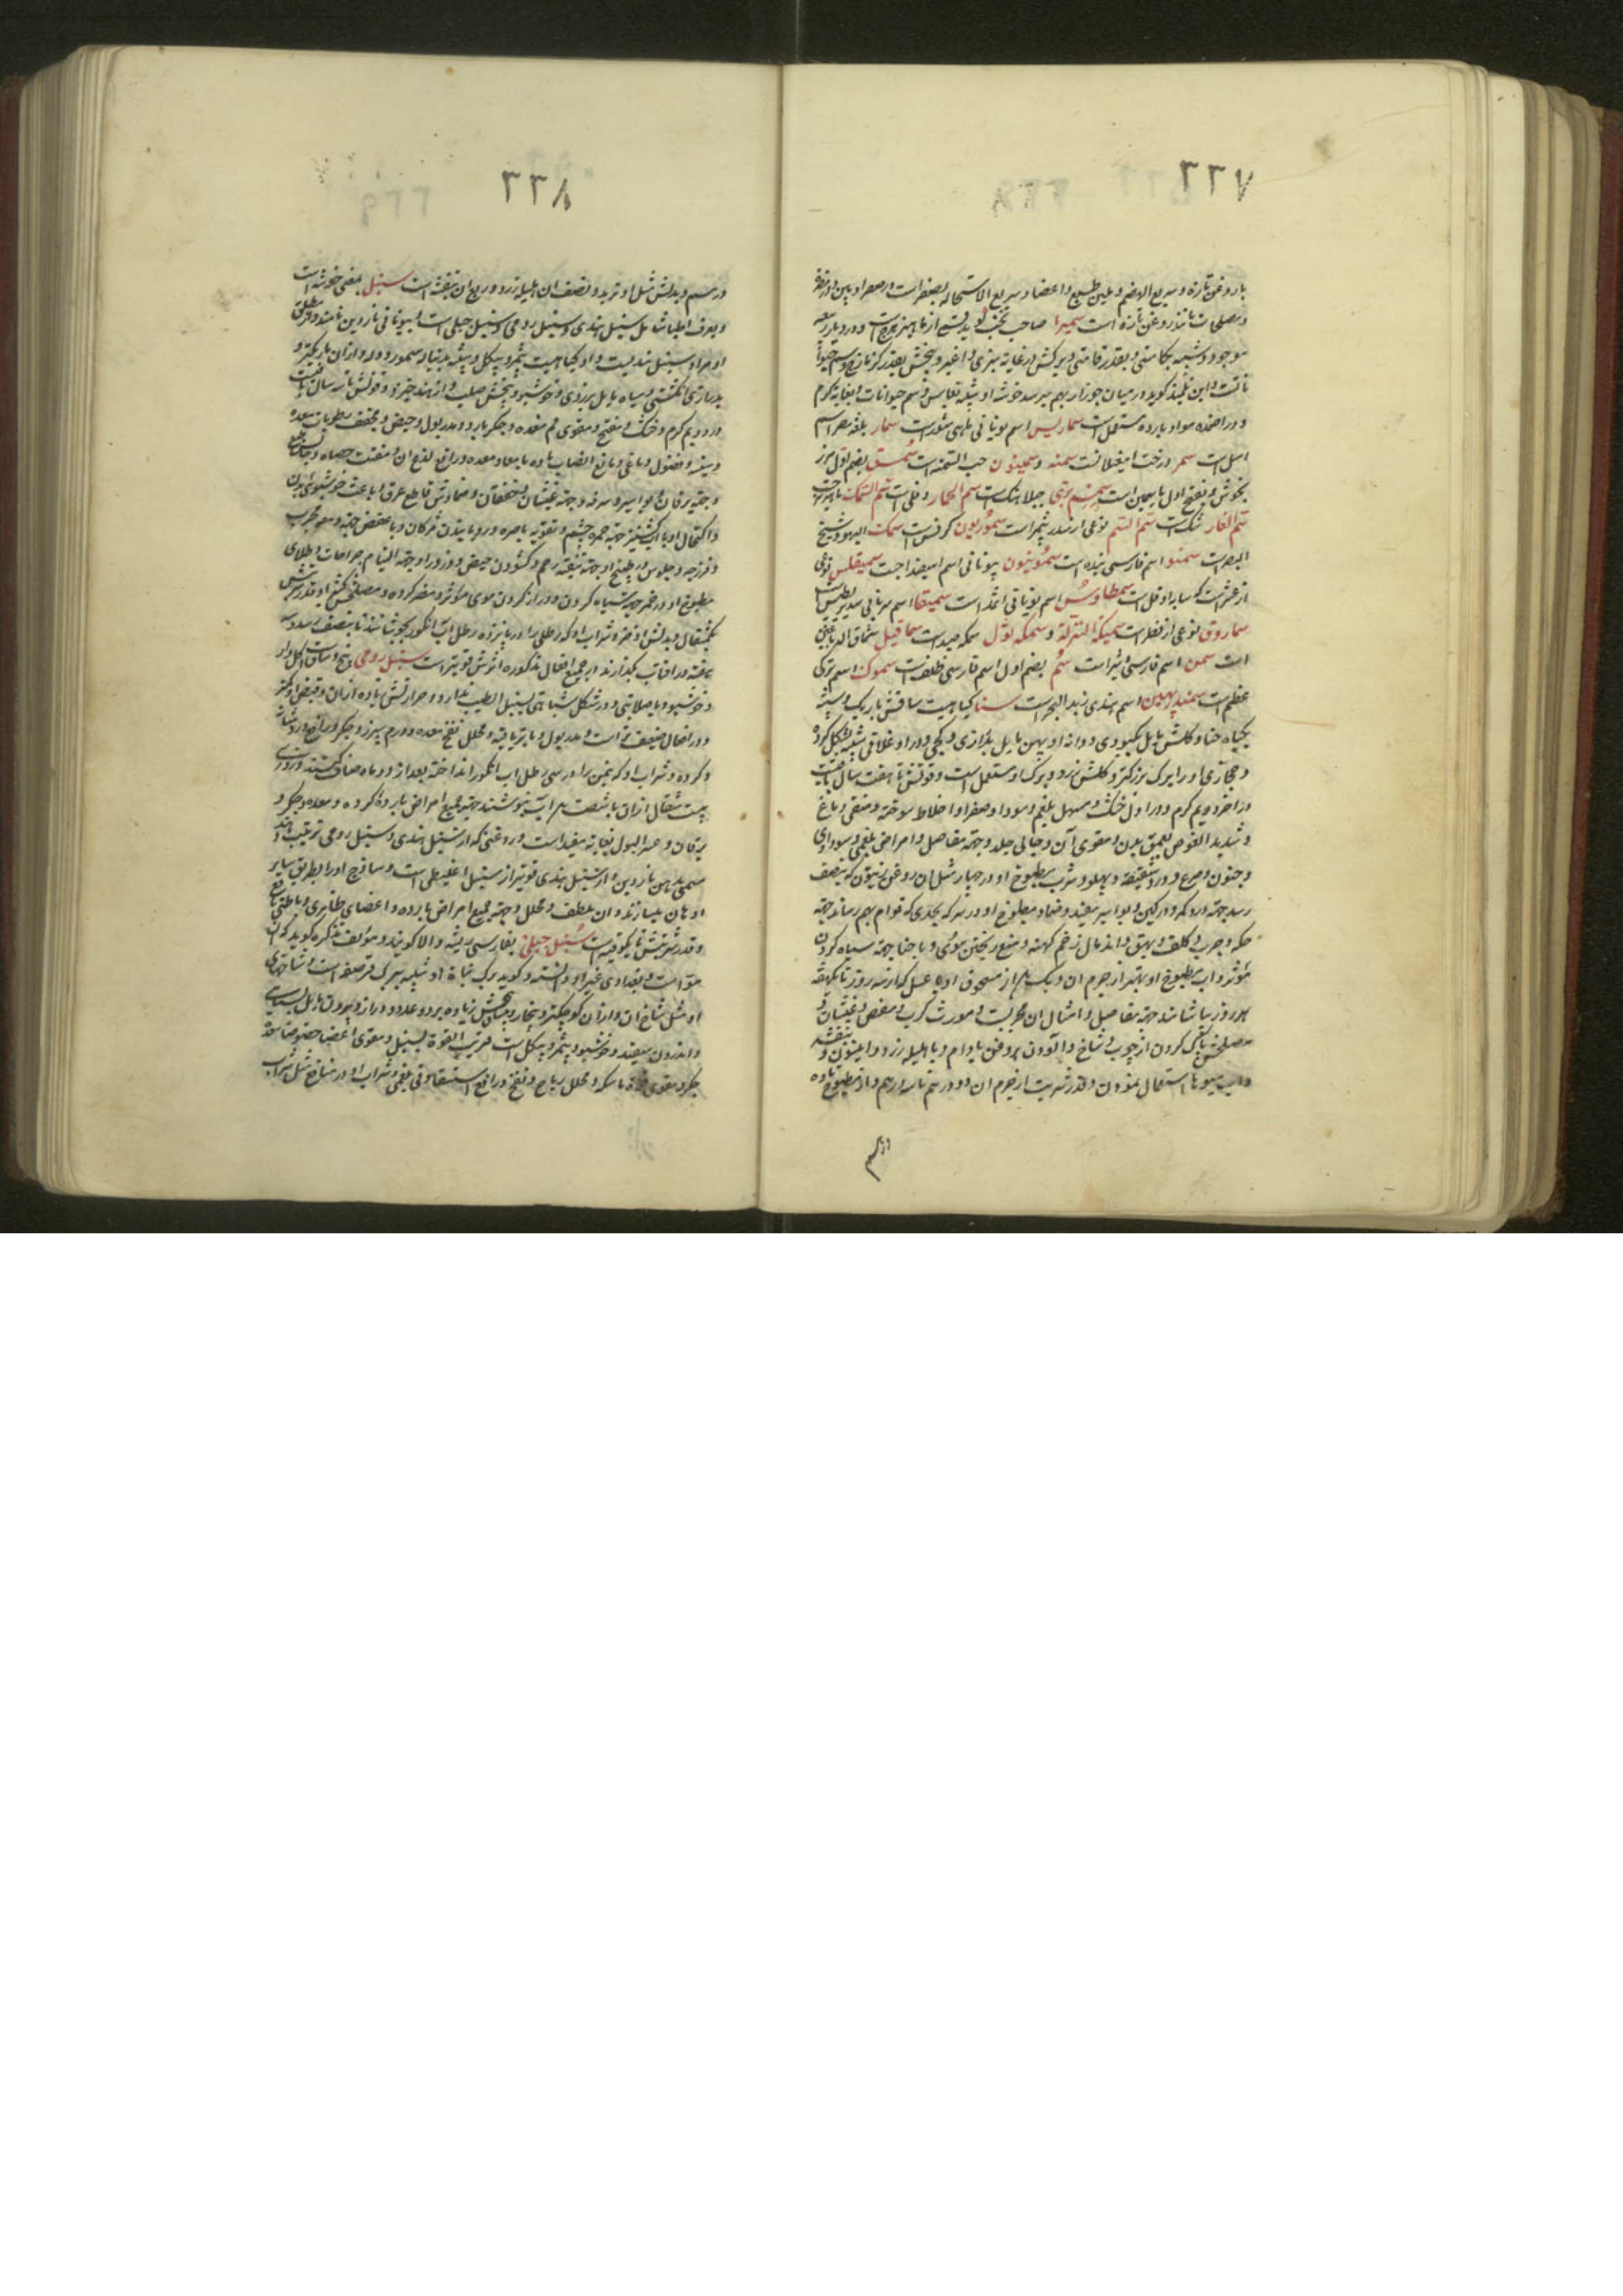 ٢٢٧
با روغن تازه و سریع الهضم و ملین طبع و اعضا و سریع الاستحاله بصفراست و مصر او بین او
و مصلحات مانند روغن تازه است سمیرا صاحب گوید
موجود و شبیه بکاسنی و بقدر قامتی و برکش در غایه سبزی و بیخش بقدر
و این تلمیذ گوید در میان جو زار بهم میرسد خوشه او شبیه و سم حیوانات و بغایه گرم
و در اضمده مواد بارده مستعمل است سماریس اسم یونانی ماهی است سمار بلغه مصر اسم
اسل است سمر درخت امغیلانست سمنه و سمینون حب السمنه است سمسق بضم اول مرز
نجوش و بفتح اول یاسمین است سمسم بری جبلاهنک است سم الحمار دفلی است سم السمک ماهیزهره
سم الفار شک است سم السم نوعی از است سموریون کرفس است سمک الیهود شیخ
البحر است سمنو اسم فارسی نیده است سمونیون یونانی اسم است سمیقلس نوعی
از عشر است که سایه او قتل است سمطاوس اسم یونانی اثمد است سمیقا اسم سریانی
سماروق نوعی از فطر است سمیکة النزلة و سمکه نوال سمکه صید است سماقیل سماق الدباغین
است سمن اسم فارسی است سم بضم اول اسم فارسی ظلف است سموک اسم ترکی
عظم است سمندر پهین اسم هندی زبد البحر است سنا کیاهیست ساقش باریک و شبیه
بکیاه حنا و کلش مایل بکبودی و دانه او پهن مایل بدرازی و کجی و در او غلافی شبیه بشکل کرده
و حجازی او را برک بزرکتر و کلش زرد و برک او مستعمل است و قوتش تا هفت سال باقیست
در آخر دویم گرم و در اول خشک و مسهل بلغم و سودا و صفرا و اخلاط سوخته و منقی دماغ
و شدید الغوص بعمق بدن و مقوی آن و جالی جلد و جهة مفاصل و امراض بلغمی و سوداوی
و جنون و صرع و درد شقیقه و پهلو و شرب مطبوخ او در چهار مثل آن روغن زیتون که بنصف
رسد جهة درد کمر و ورکین و بواسیر مفید و ضماد مطبوخ او در سرکه بحدی که قوام بهم رساند جهة
حکه و جرب و کلف و بهق و اندمال زخم کهنه و منع ریختن موی و با حنا جهة سیاه کردن
موثر و آب مطبوخ او بهتر از جرم آن و یک از مسحوق او با عسل که از سه روز تا یکهفته
هر روز بیاشامند جهة مفاصل و امثال آن مجربست و مورث کرب و مغص و غثیان و
مصلحش پاک کردن از چوب و شاخ و آلودن بروغن بادام و با هلیله زرد و انیسون و بنفشه
و آب میوها استعمال نمودن و قدر شربت از جرم آن دو درهم تا سه درهم و از مطبوخ تا ده
درهم
٢٢٨
درهم و بدلش مثل او تربد و نصف آن هلیله زرد و ربع آن بنفشه است سنبل بمعنی خوشه است
و بعرف اطبا شامل سنبل هندی و سنبل رومی و سنبل جبلی است و بیونانی ناردین نامند و از مطلق
او مراد سنبل هندیست و او کیاهیست بیثمر و بیکل و شبیه بدنباله سمور و دله و از آن باریکتر و
بدرازی انگشتی و سیاه مایل بزردی و خوشبو و بیخش صلب و از هند خیزد و قوتش تا سه سال باقیست
در دویم گرم و خشک و مفتح و مقوی فم معده و جکر بارد و مدر بول و حیض و مجفف رطوبات معده
و سینه و فضول دماغی و مانع انصباب ماده بامعاء و معده و رافع لذع آن و مفتت حصاه و
و جهة یرقان و بواسیر و سرفه و جهة غثیان و خفقان و ضمادش قاطع عرق و باعث خوشبوئی بدن
و اکتحال او با آب کشنیز جهة حمره چشم و تقویه باصره و رویانیدن مژکان و با عفص جهة دمعه مجرب
و فرزجه و جلوس در طبیخ او جهة تنقیه رحم و کشودن حیض و ذرور او جهة التیام جراحات و طلای
مطبوخ او در خمر جهة سیاه کردن و دراز کردن موی موثر و مضر کرده و مصلحش کتیرا و قدر شربتش
یکمثقال و بدلش اذخر و شراب او که رطلی را در پانزده رطل آب انگور بجوشانند تا بنصف رسد و سه
هفته در آفتاب بگذارند در جمیع افعال مذکوره اثرش قویتر است سنبل رومی بیخ و ساق و کل او
و خوشبو و با صلابتی و در شکل شباهتی بسنبل الطیب ندارد و حرارتش زیاده از آن و قبض او کمتر
و در افعال ضعیف تر است و مدر بول و با تریاقیه و محلل نفخ معده و ورم سپرز و جکر و رافع درد مثانه
و کرده و شراب او که نیمن را در سی رطل آب انگور انداخته بعد از دو ماه صاف کنند و روزی
بیست مثقال از آن با شصت آب بنوشند جهة جمیع امراض بارده کرده و معده و جکر و
یرقان و عسر البول بغایه مفید است و روغنی که از سنبل هندی و سنبل رومی ترتیب دهند
مسمی بدهن ناردین و از سنبل هندی قویتر از سنبل اغلیطی است و ساذج او را بطریق سایر
ادهان میسازند و آن ملطف و محلل و جهة جمیع امراض بارده و اعضای ظاهری و باطنی نافع
و قدر شربتش تا یکوقیه است سنبل جبلی بفارسی ریشه والا گویند و مولف تذکره گوید که آن
مو است و بغدادی غیر او دانسته و گوید برک نباة او شبیه ببرک قرصعنه است و شاخهای
او مثل شاخ آن و از آن کوچکتر و بیخار و بیخش زیاده بر دو عدد و دراز و بیرون مایل بسیاهی
و اندرون سفید و خوشبو و بیثمر و بیکل است قریب القوة بسنبل و مقوی اعضا خصوصا معده
جکر و مقوی قوة ماسکه و محلل ریاح و نفخ و رافع استسقاء و قی بلغمی و شراب او در منافع مثل شراب